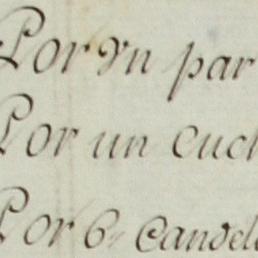 Por Yn par
Por un cuch
Por 6, Candel